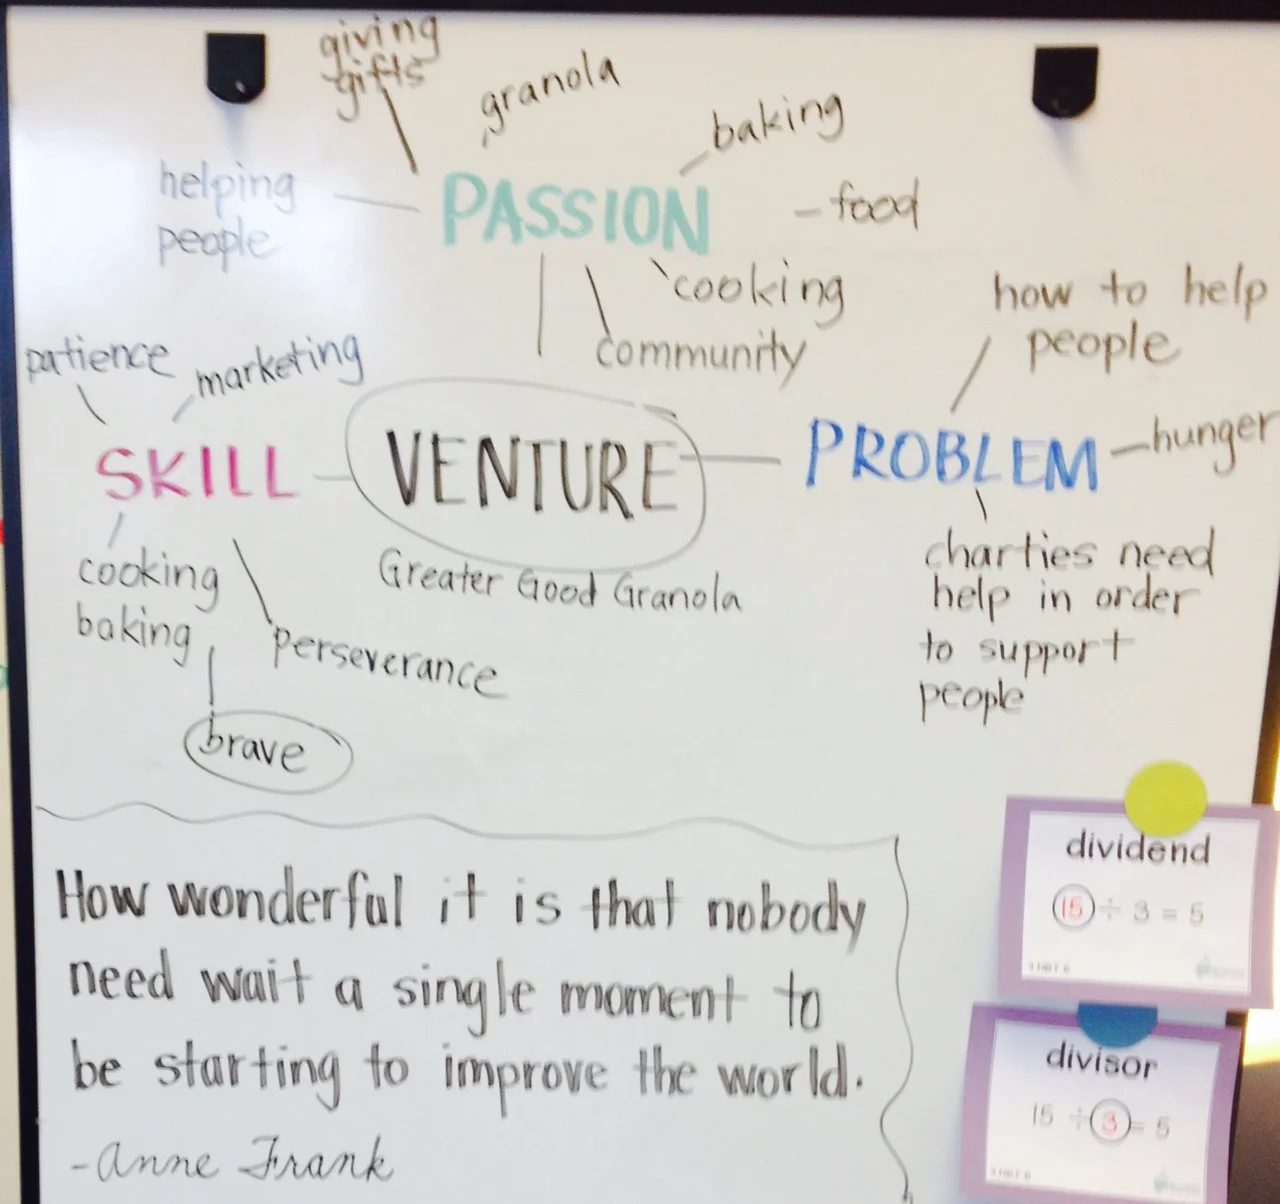 giving
gifts
granola
baking
helping
people
PASSION
food
cooking
community
how to help
people
patience
marketing
SKILL
VENTURE
PROBLEM
hunger
Greater Good Granola
cooking
baking
perseverance
brave
charties need
help in order
to support
people
How wonderful it is that nobody
need wait a single moment to
be starting to improve the world.
-Anne Frank
dividend
15 ÷ 3 = 5
divisor
15 ÷ 3 = 5